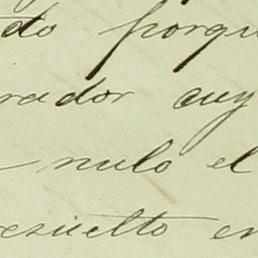 do porqu
rador cuy
nulo el
esuelto en